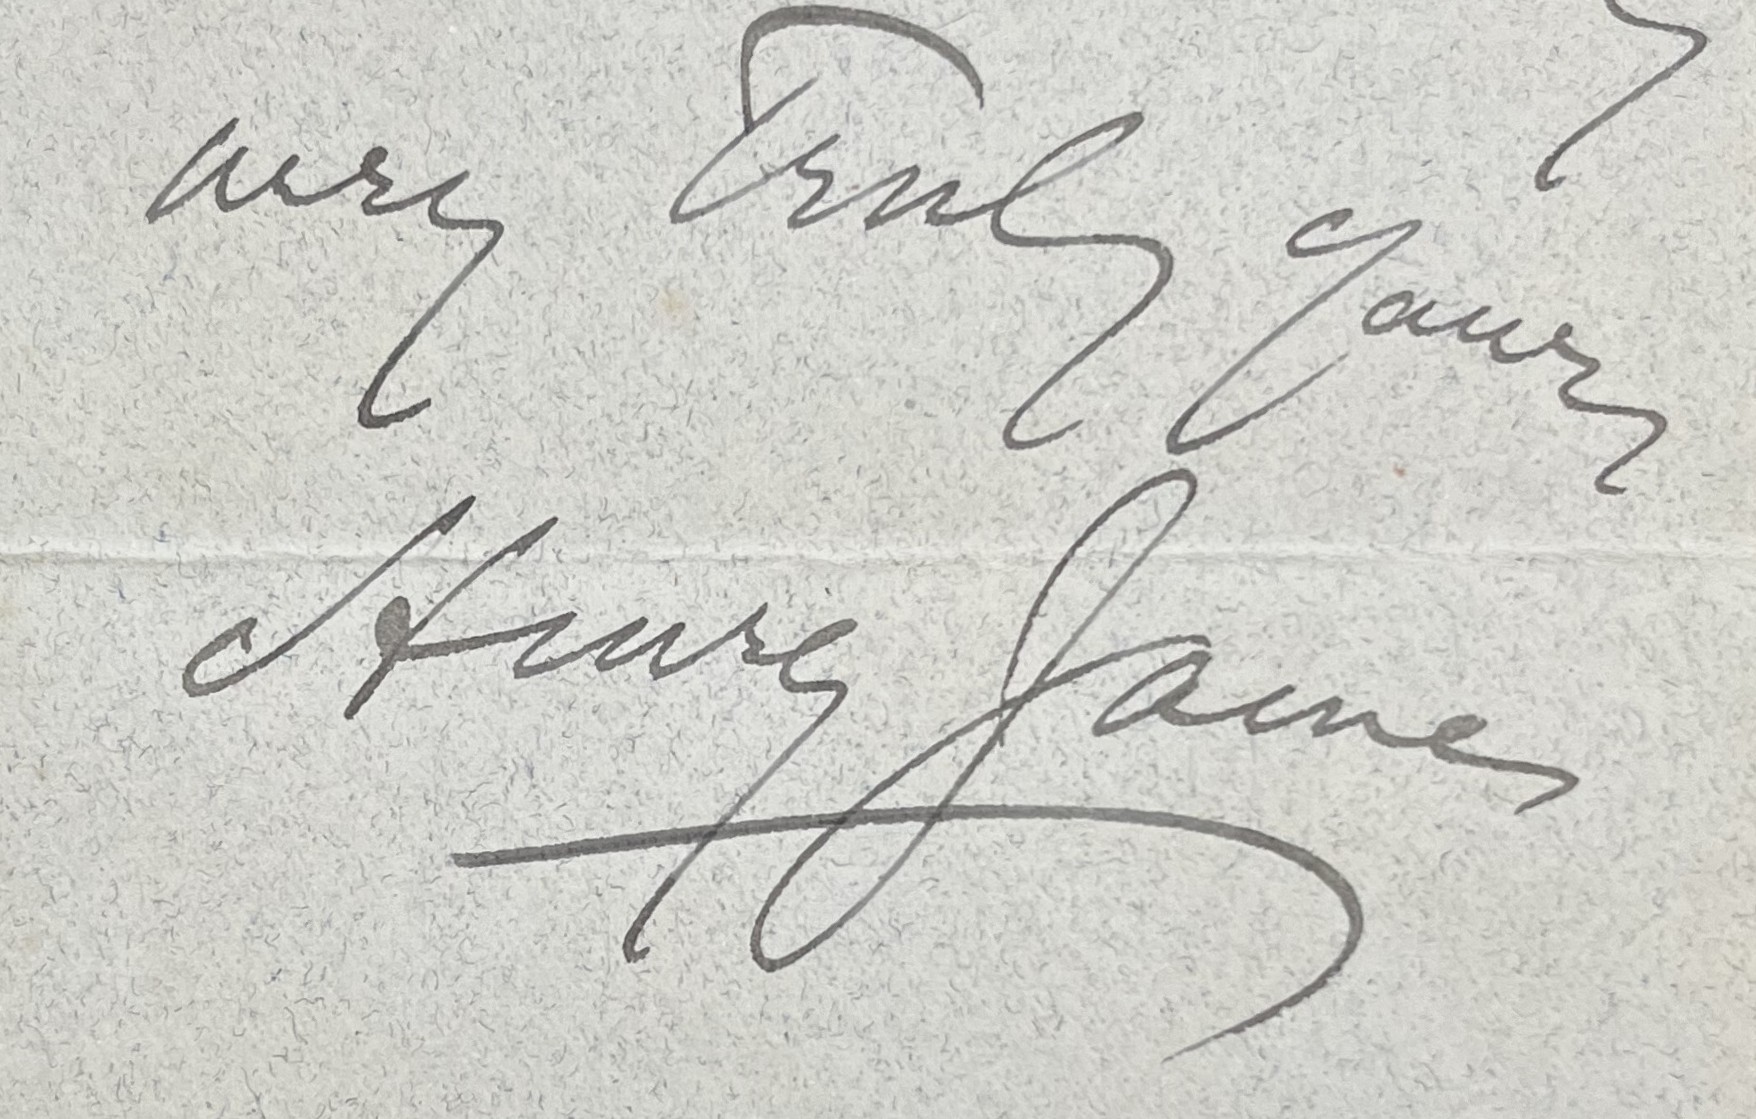 very truly yours
Henry James